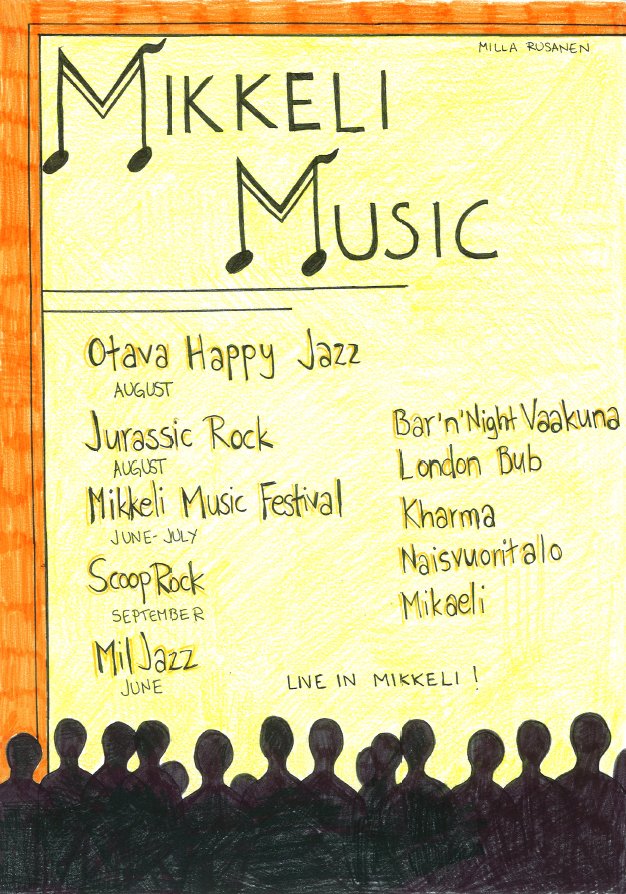 MILLA RUSANEN
MIKKELI
MUSIC
Otava Happy Jazz
AUGUST
Jurassic Rock
AUGUST
Mikkeli Music Festival
JUNE-JULY
ScoopRock
SEPTEMBER
MilJazz
JUNE
Bar'n'Night Vaakuna
London Bub
Kharma
Naisvuoritalo
Mikaeli
LIVE IN MIKKELI!